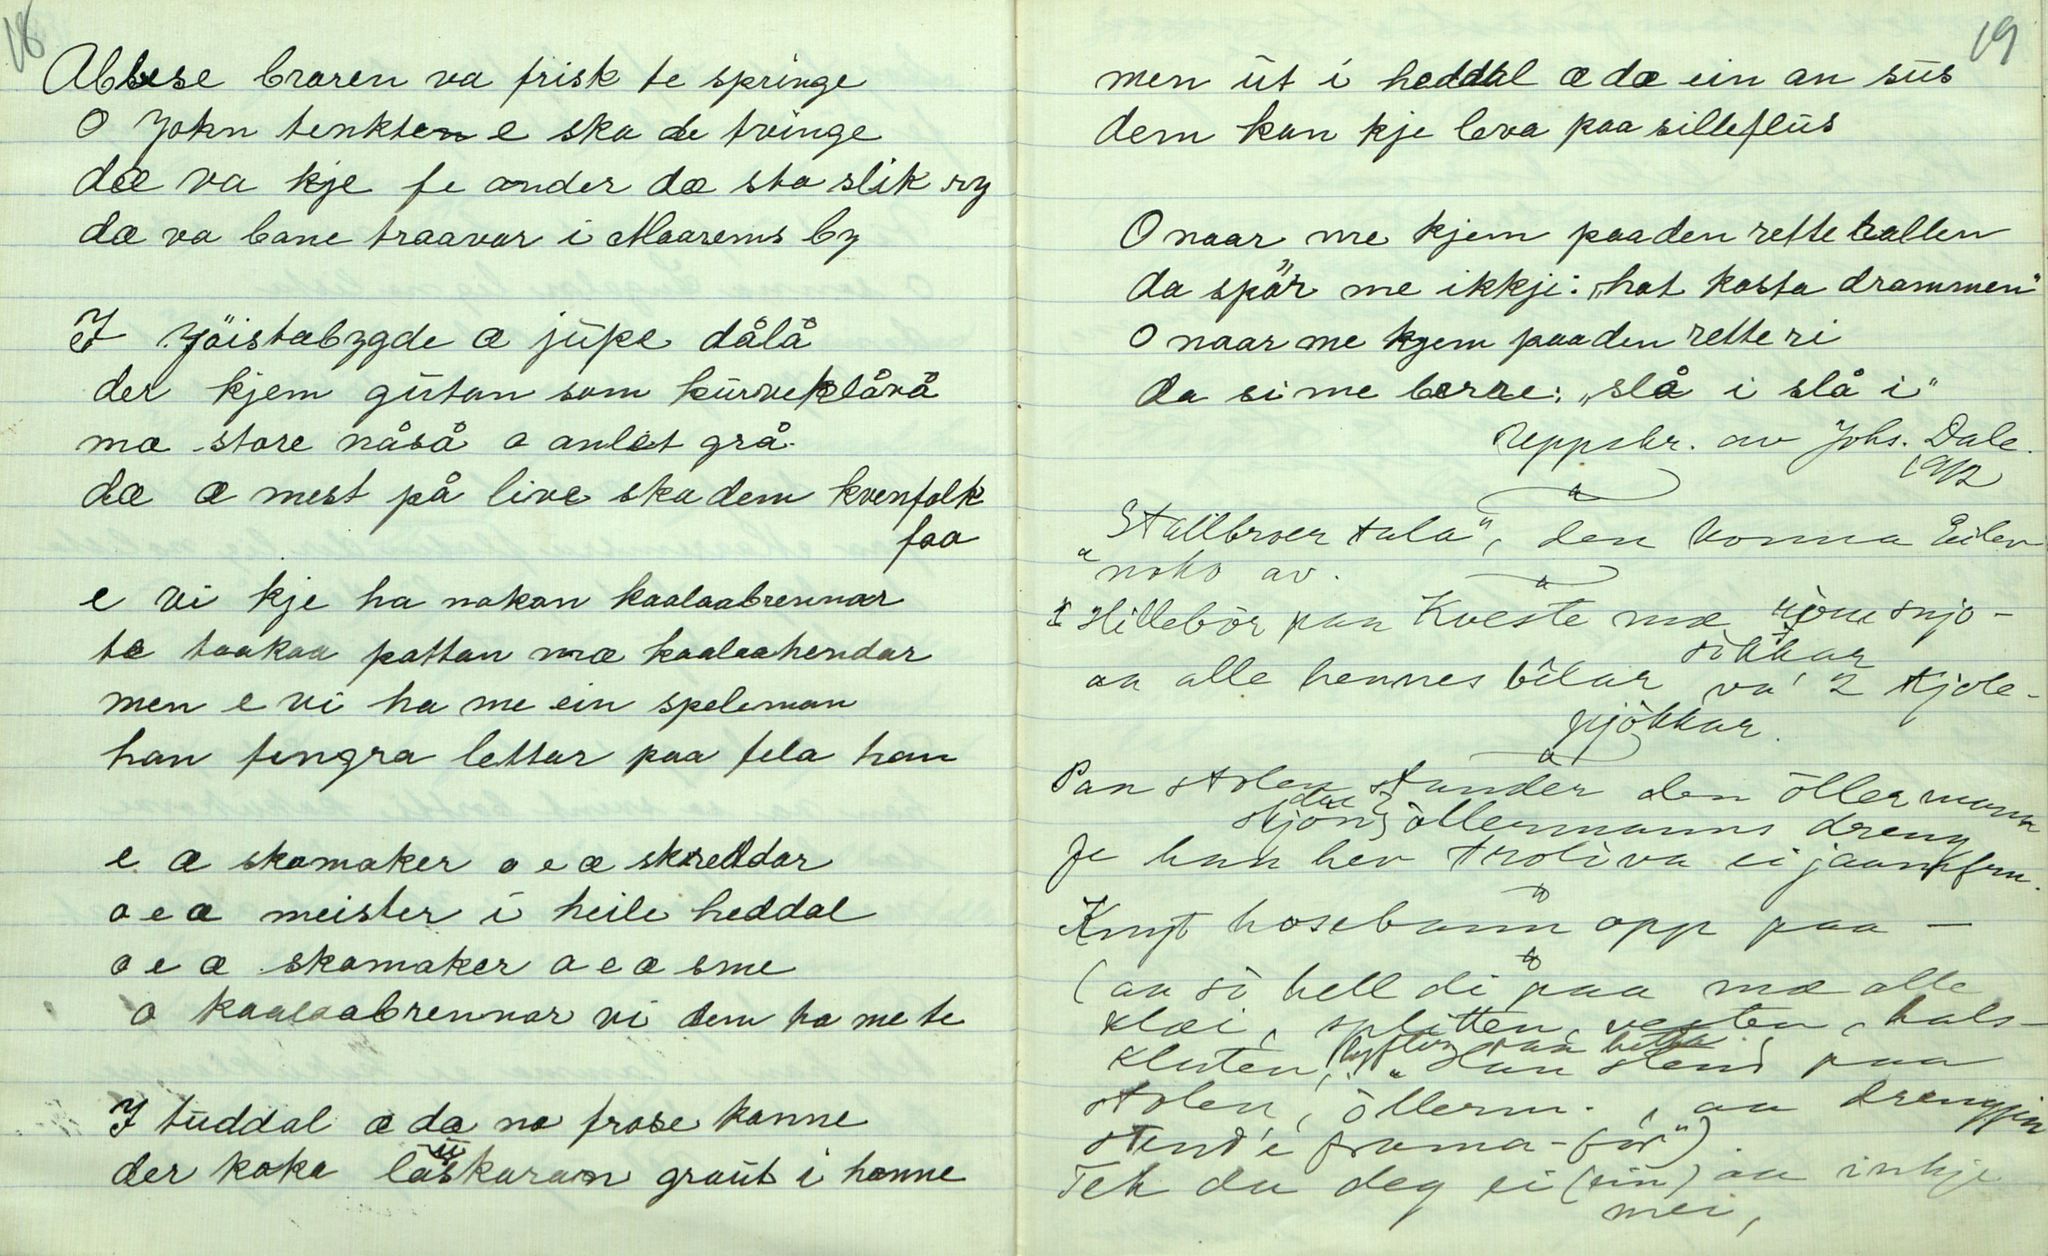 18
Abbese braren va frisk te springe
O John tenkte e ska de tvinge
dæ va kje fe ander dæ sto slik ry
dæ va bane traavar i Maarems by
I Jöistabygde æ jupe dålå
der kjem gutan som kurveklåvå
mæ store nåså o anlet grå
dæ æ mest på live ska dem kvenfolk
faa
e vi kje ha nokon kaalaabrennar
te taakaa pattan mæ kaalaahendar
men e vi ha me ein speleman
han fengra lettar paa fela han
e æ skomaker o e æ skreddar
o e æ meister i heile heddal
o e æ skomaker o e æ sme
o kaalaabrennar vi dem ha me te
I tuddal æ dæ no frose konne
der koka lauskaran graut i honne
19
men ut i heddal æ dæ ein an sus
dem kan kje leva paa silleflus
O naar me kjem paa den rette
da spör me ikkji: „hot kosta drammen"
O naar me kjem paa den rette ri
da si me berre: „slå i slå i"
Uppskr. av Johs. Dale.
1912
"Stallbroer tala", den konna Eilev
noko av.
Hillebör paa Kveste mæ snjo-
sokkar
aa alle hennes bilar va' 2 kjole-
pjökkar.
Paa stolen stander den öllermann
öllermanns dreng
fe han hev
Knyt hoseband opp paa —
(aa so hell di paa mæ alle
klæi, splitten, vesten, hals-
kluten, "Han stend paa
stolen, öllerm., aa drengjin
stend i frama-för")
Tek du deg ei (ein) aa inkje
mei,